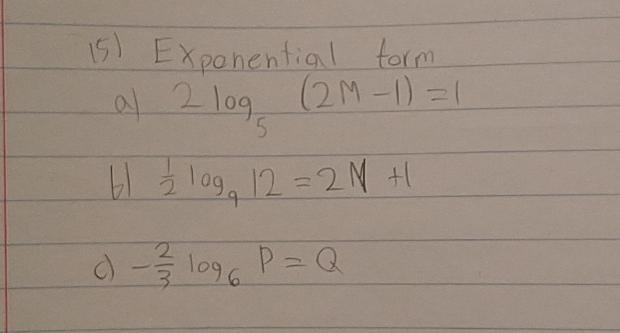 15) Exponential form
a) 2 log₅ (2M-1) = 1
b) ½ log₉ 12 = 2N + 1
c) -⅔ log₆ P = Q